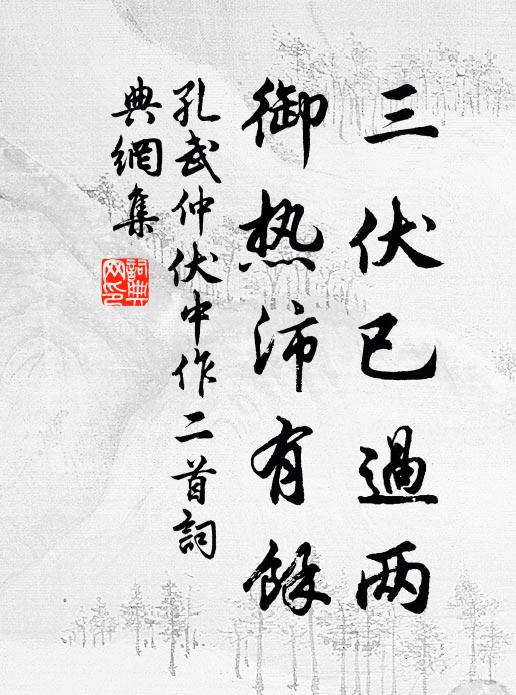 三伏已過两
御热沛有餘
孔武仲伏中作二首詞
典網集
詞典
网印